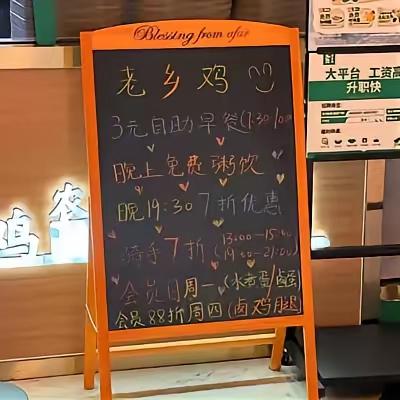 Blessing from afar
老乡鸡
3元自助早餐
晚上免费粥饮
晚19:30 7折优惠
骑手7折(13:00-15:00
(19:30-21:00)
会员日周一(水煮蛋/卤蛋
会员88折周四(卤鸡腿
大平台 工资高
升职快
鸡